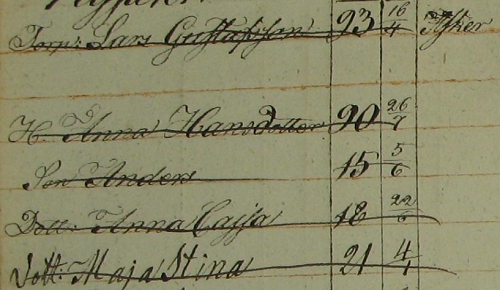 Torp: Lars Gustafsson 93 16/4 Asker
H. Anna Hansdotter 90 26/7
Son Anders 15 5/6
Dott: Anna Cajsa 18 22/6
Dott: Maja Stina 21 4/4